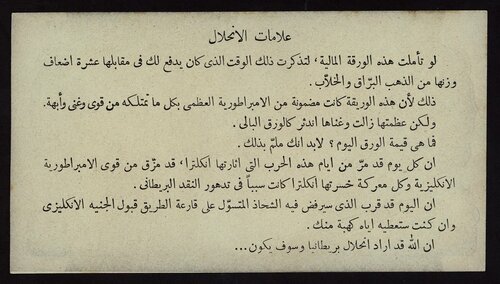 علامات الانحلال
لو تأملت هذه الورقة المالية، لتذكرت ذلك الوقت الذى كان يدفع لك فى مقابلها عشرة اضعاف
وزنها من الذهب البرّاق والخلاّب .
ذلك لأن هذه الوريقة كانت مضمونة من الامبراطورية العظمى بكل ما تمتلكه من قوى وغنى وأبهة.
ولكن عظمتها زالت وغناها اندثر كالورق البالى .
فما هى قيمة الورق اليوم ؟ لابد انك ملمّ بذلك .
ان كل يوم قد مرّ من ايام هذه الحرب التى اثارتها انكلترا، قد مزّق من قوى الامبراطورية
الانكليزية وكل معركة خسرتها انكلترا كانت سبباً فى تدهور النقد البريطانى .
ان اليوم قد قرب الذى سيرفض فيه الشحاذ المتسوّل على قارعة الطريق قبول الجنيه الانكليزى
وان كنت ستعطيه اياه كهبة منك .
ان الله قد اراد انحلال بريطانيا وسوف يكون...